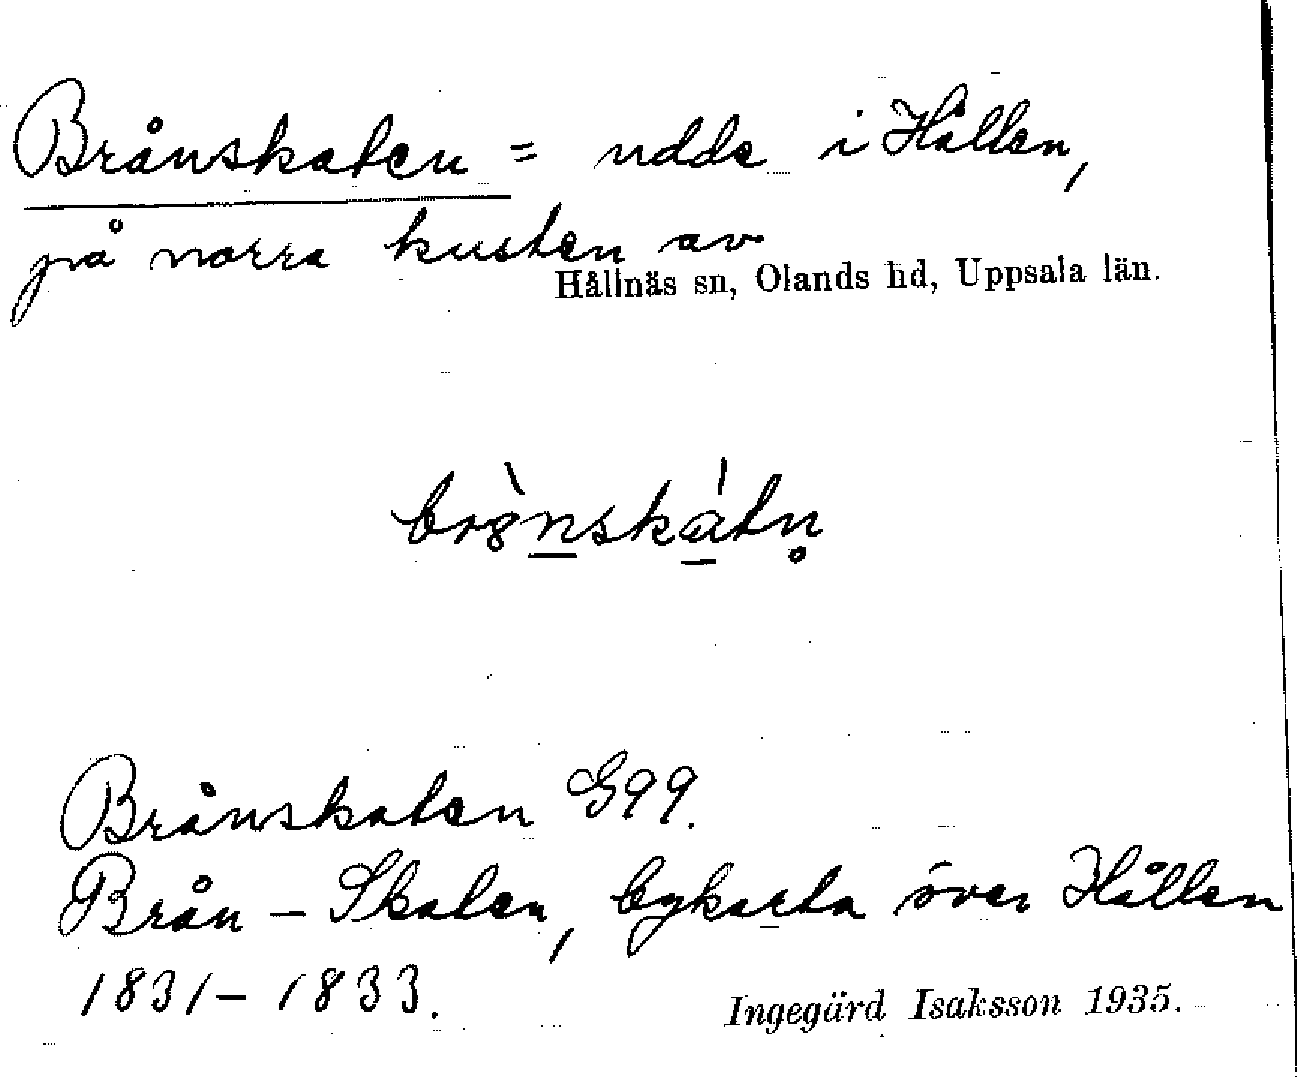 Brånskaten = udde i Hållen,
på norra kusten av
Hållnäs sn, Olands hd, Uppsala län.
br8̀nskátn̥
Brånskaten G99.
Brån - Skaten, bykarta över Hållen
1831 - 1833.
Ingegärd Isaksson 1935.